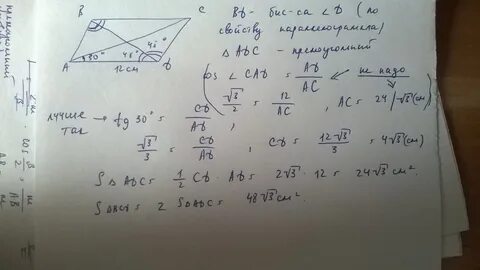 B
C
A
D
30°
45°
45°
12 см
BD - бис-са ∠D (по
свойству параллелограмма)
△ADC - прямоугольный
cos ∠CAD = AD/AC ← не надо
√3/2 = 12/AC, AC = 24/√3 (см)
лучше так → tg 30° = CD/AD,
√3/3 = CD/AD, CD = 12√3/3 = 4√3 (см)
S△ADC = 1/2 CD · AD = 2√3 · 12 = 24√3 см²
SABCD = 2 SADC = 48√3 см².